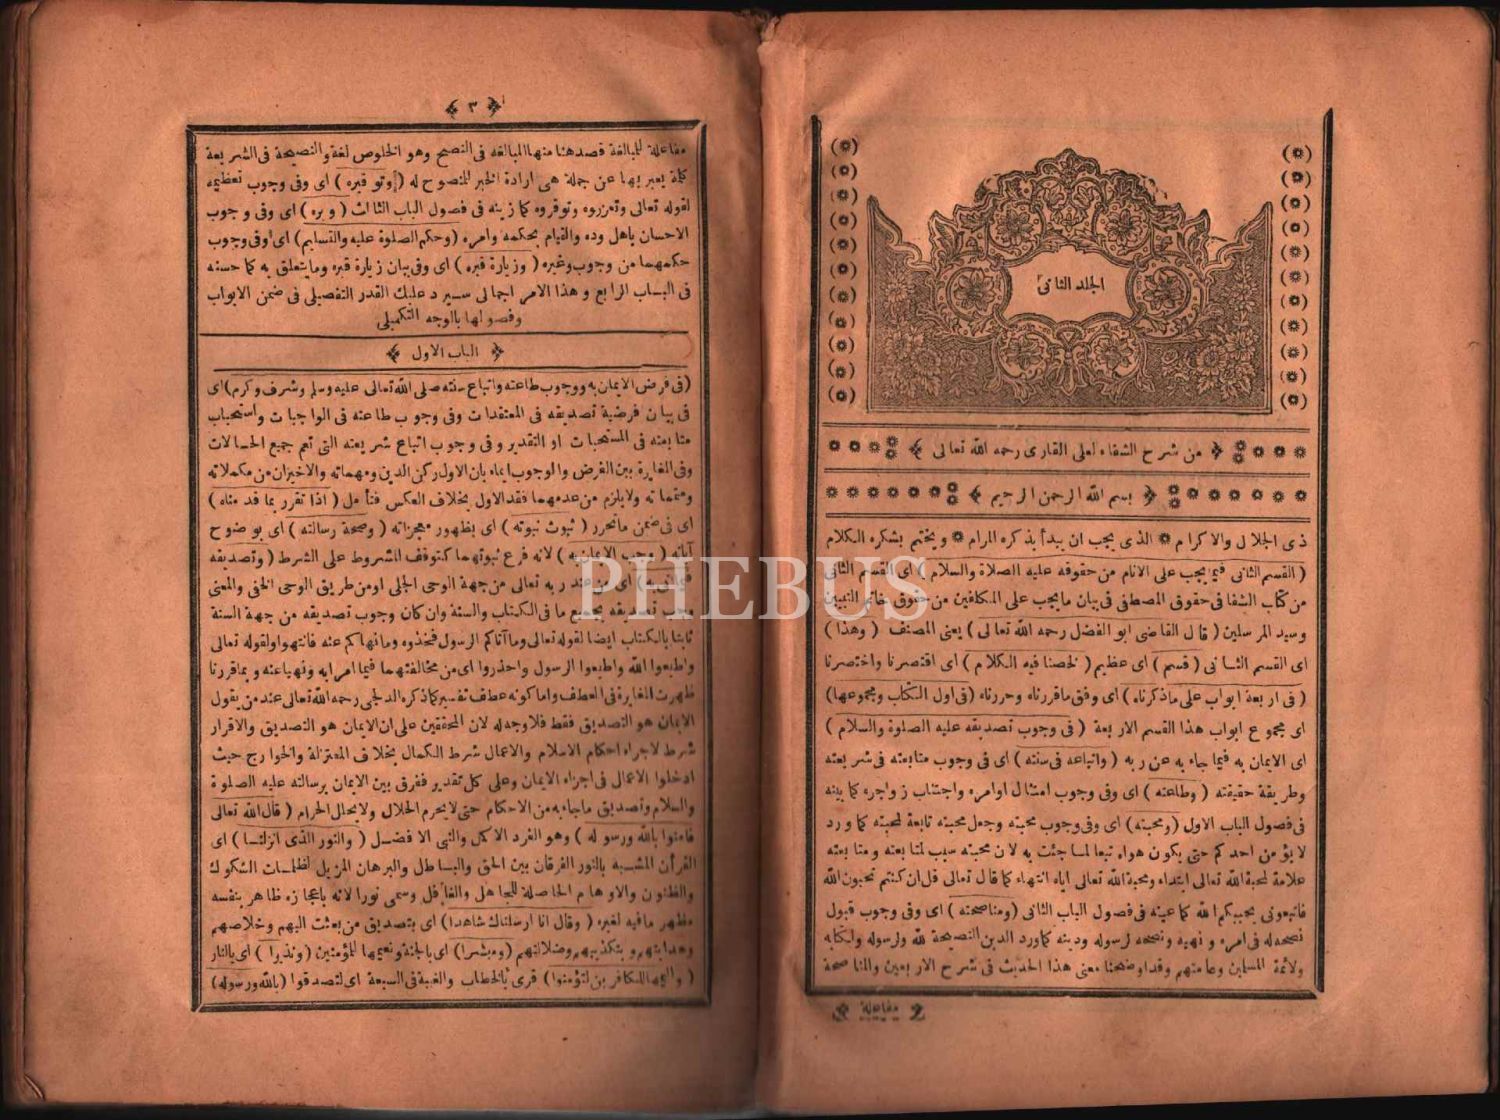 الجلد الثانى
من شرح الشفاء لعلى القارى رحمه الله تعالى
بسم الله الرحمن الرحيم
ذى الجلال والاكرام * الذى يجب ان يبدأ بذكره المرام * ويختم بشكره الكلام
( القسم الثانى فيما يجب على الانام من حقوقه عليه الصلاة والسلام ) اى القسم الثانى
من كتاب الشفا فى حقوق المصطفى فى بيان ما يجب على المكلفين من حقوق خاتم النبيين
وسيد المرسلين ( قال القاضى ابو الفضل رحمه الله تعالى ) يعنى المصنف ( وهذا )
اى القسم الثانى ( قسم ) اى عظيم ( لخصنا فيه الكلام ) اى اقتصرنا واختصرنا
( فى اربعة ابواب على ما ذكرناه ) اى وفق ما قررناه وحررناه ( فى اول الكتاب ومجموعها )
اى مجموع ابواب هذا القسم الاربعة ( فى وجوب تصديقه عليه الصلوة والسلام )
اى الايمان به فيما جاء به عن ربه ( واتباعه فى سنته ) اى فى وجوب متابعته فى شريعته
وطريقة حقيقته ( وطاعته ) اى وفى وجوب امتثال اوامره واجتناب زواجره كما بينه
فى فصول الباب الاول ( ومحبته ) اى وفى وجوب محبته وجعل محبته تابعة لمحبته كما ورد
لا يؤمن احدكم حتى يكون هواه تبعا لما جئت به لان محبته سبب لمتابعته ومتابعته
علامة لمحبة الله تعالى ابتداء ومحبة الله تعالى اياه انتهاء كما قال تعالى قل ان كنتم تحبون الله
فاتبعونى يحببكم الله كما عينه فى فصول الباب الثانى ( ومناصحته ) اى وفى وجوب قبول
نصحه له فى امره ونهيه ونصحه لرسوله ودينه كما ورد الدين النصيحة لله ولرسوله ولكتابه
ولائمة المسلمين وعامتهم وقد اوضحنا معنى هذا الحديث فى شرح الاربعين والمناصحة
مفاعلة
٣
مفاعلة للمبالغة قصد هنا منها المبالغه فى النصح وهو الخلوص لغة والنصيحة فى الشريعة
كلمة يعبر بها عن جملة هى ارادة الخير للمنصوح له ( وتوقيره ) اى وفى وجوب تعظيمه
لقوله تعالى وتعزروه وتوقروه كما زينه فى فصول الباب الثالث ( وبره ) اى وفى وجوب
الاحسان باهل وده والقيام بحكمه وامره ( وحكم الصلوة عليه والتسليم ) اى وفى وجوب
حكمهما من وجوب وغيره ( وزيارة قبره ) اى وفى بيان زيارة قبره وما يتعلق به كما حسنه
فى الباب الرابع وهذا الامر اجمالى سيرد عليك القدر التفصيلى فى ضمن الابواب
وفصولها بالوجه التكميلى
الباب الاول
( فى فرض الايمان به ووجوب طاعته واتباع سنته صلى الله تعالى عليه وسلم وشرف وكرم ) اى
فى بيان فرضية تصديقه فى المعتقدات وفى وجوب طاعته فى الواجبات واستحباب
متابعته فى المستحبات او التقدير وفى وجوب اتباع شريعته التى تعم جميع الحالات
وفى المغايرة بين الفرض والوجوب ايماء بان الاول ركن الدين ومهماته والاخيران من مكملاته
ومتمماته ولا يلزم من عدمهما فقد الاول بخلاف العكس فتأمل ( اذا تقرر بما قدمناه )
اى فى ضمن ما تحرر ( ثبوت نبوته ) اى بظهور معجزاته ( وصحة رسالته ) اى بوضوح
آياته ( وجب الايمان به ) لانه فرع ثبوتهما كتوقف المشروط على الشرط ( وتصديقه
فيما اتى به ) اى من عند ربه تعالى من جهة الوحى الجلى او من طريق الوحى الخفى والمعنى
وجب تصديقه بجميع ما فى الكتاب والسنة وان كان وجوب تصديقه من جهة السنة
ثابتا بالكتاب ايضا لقوله تعالى وما آتاكم الرسول فخذوه وما نهاكم عنه فانتهوا ولقوله تعالى
واطيعوا الله واطيعوا الرسول واحذروا اى من مخالفتهما فيما امرا به ونهيا عنه وبما قررنا
ظهرت المغايرة فى العطف واما كونه عطف تفسير كما ذكره الدلجى رحمه الله تعالى عند من يقول
الايمان هو التصديق فقط فلا وجه له لان المحققين على ان الايمان هو التصديق والاقرار
شرط لاجراء احكام الاسلام والاعمال شرط الكمال بخلاف المعتزلة والخوارج حيث
ادخلوا الاعمال فى اجزاء الايمان وعلى كل تقدير ففرق بين الايمان برسالته عليه الصلوة
والسلام وتصديق ما جاء به من الاحكام حتى لا يحرم الحلال ولا يحلل الحرام ( قال الله تعالى
فامنوا بالله ورسوله ) وهو الفرد الاكمل والنبى الافضل ( والنور الذى انزلنا ) اى
القرأن المشبه بالنور الفرقان بين الحق والباطل والبرهان المزيل لظلمات الشكوك
والظنون والاوهام الحاصلة للجاهل والغافل وسمى نورا لانه باعجازه ظاهر بنفسه
مظهر ما فيه لغيره ( وقال انا ارسلناك شاهدا ) اى بتصديق من بعثت اليهم وخلاصهم
وهدايتهم وبتكذيبهم وضلالتهم ( ومبشرا ) اى بالجنة ونعيمها للمؤمنين ( ونذيرا ) اى بالنار
( واليمها للكافرين لتؤمنوا ) قرئ بالخطاب والغيبة فى السبعة اى لتصدقوا ( بالله ورسوله )
PHEBUS